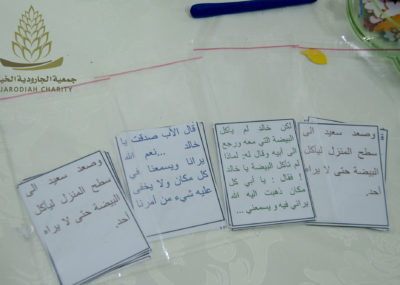 جمعية الجارودية الخي
JARODIAH CHARITY
وصعد سعيد الى
سطح المنزل ليأكل
البيضة حتى لا يراه
أحد.
قال الأب صدقت يا
خالد ...نعم الله
يرانا ويسمعنا في
كل مكان ولا يخفى
عليه شيء من أمرنا
لكن خالد لم يأكل
البيضة التي معه ورجع
الى ابيه وقال له: لماذا
لم تأكل البيضة يا خالد
! فقال : يا أبي كل
مكان ذهبت اليه الله
يراني فيه و يسمعني ...
وصعد سعيد الى
سطح المنزل ليأكل
البيضة حتى لا يراه
أحد.